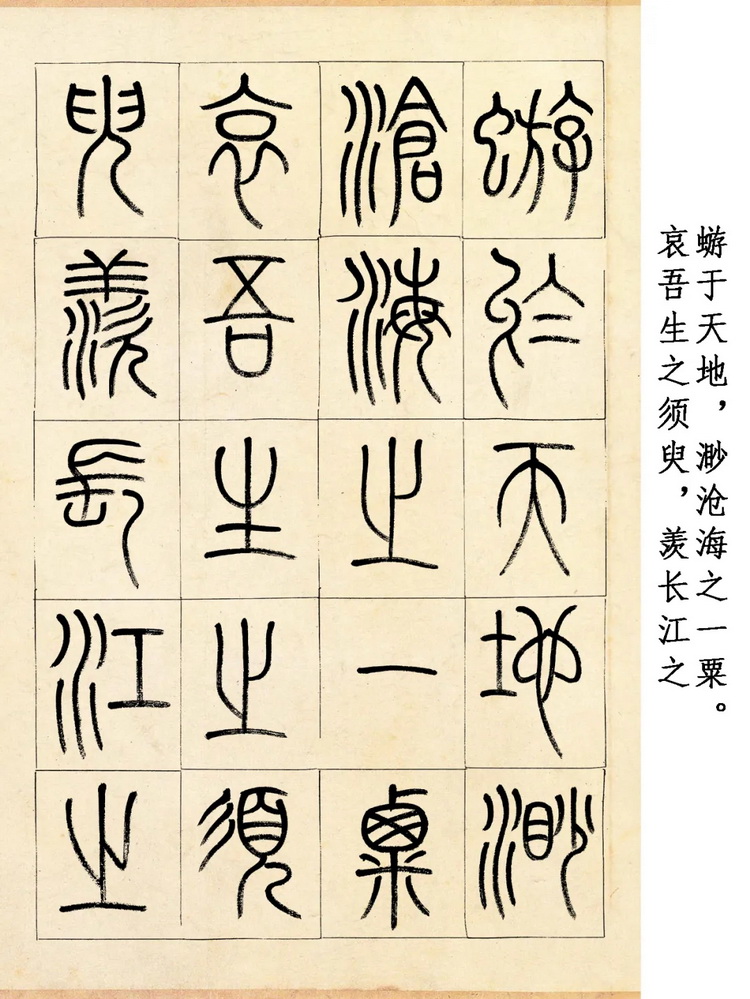 蝣於天地渺
滄海之一粟
哀吾生之須
臾羨長江之
蝣于天地，渺沧海之一粟。
哀吾生之须臾，羡长江之